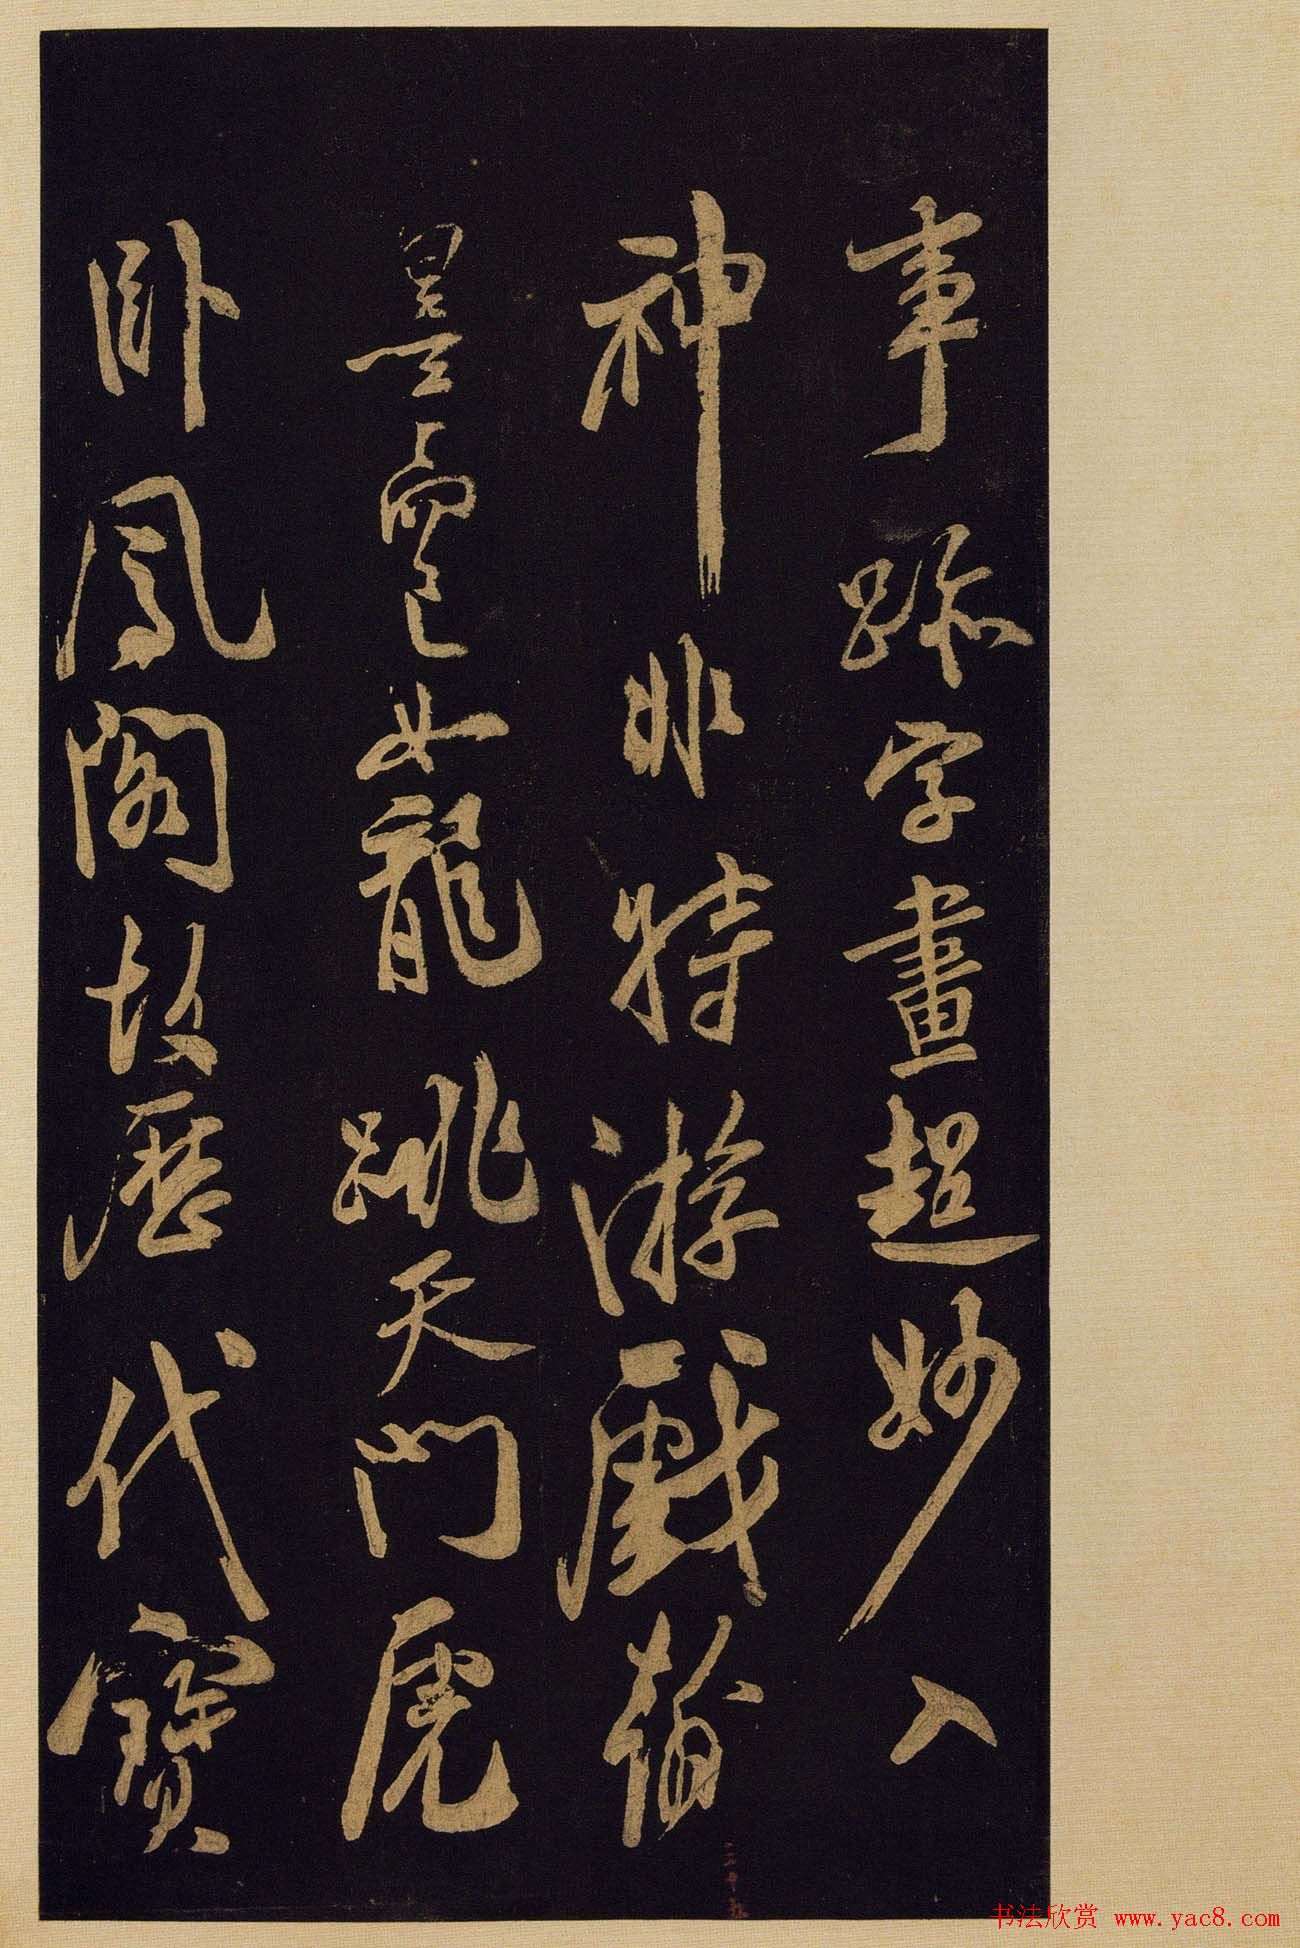 事跡字畫超妙入
神非特游戲翰
墨而已如龍跳天門虎
卧鳳閣故歷代寶
书法欣赏 www.yac8.com